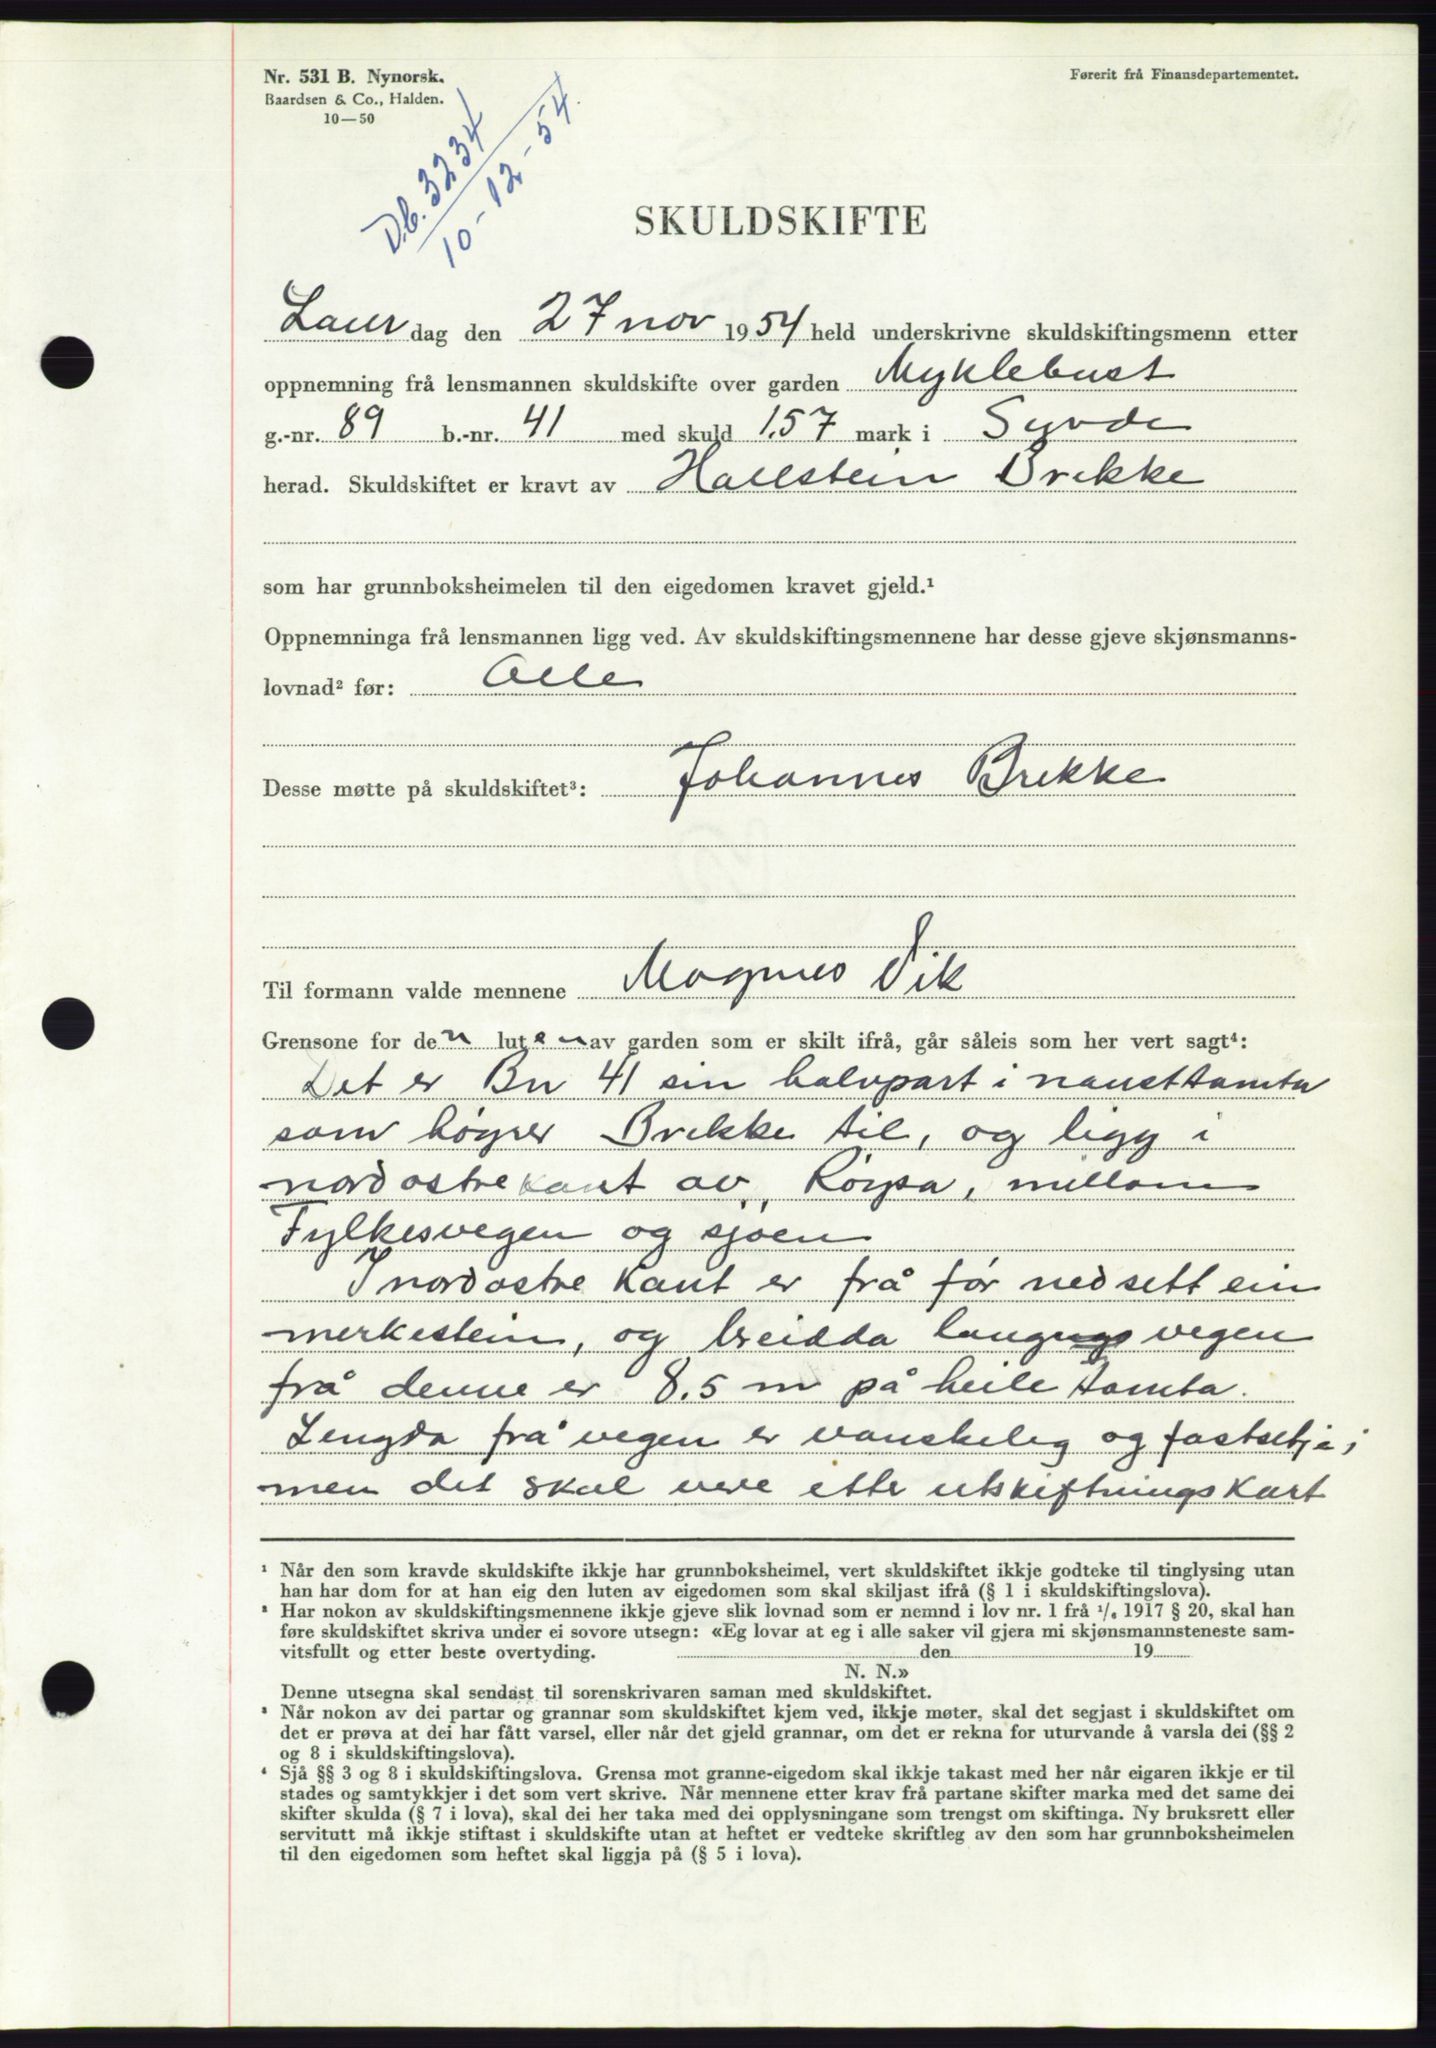 Nr. 531 B. Nynorsk.
Baardsen & Co., Halden.
10—50
Førerit frå Finansdepartementet.
Db. 3234/
10-12-54.
SKULDSKIFTE
Laur dag den 27 nov 1954 held underskrivne skuldskiftingsmenn etter
oppnemning frå lensmannen skuldskifte over garden Myklebust
g.-nr. 89 b.-nr. 41 med skuld 1.57 mark i Syvde
herad. Skuldskiftet er kravt av Hallstein Brekke
som har grunnboksheimelen til den eigedomen kravet gjeld.¹
Oppnemninga frå lensmannen ligg ved. Av skuldskiftingsmennene har desse gjeve skjønsmanns-
lovnad² før: Alle
Desse møtte på skuldskiftet³: Johannes Brekke
Til formann valde mennene Magnus Vik
Grensone for den luten av garden som er skilt ifrå, går såleis som her vert sagt⁴:
Det er Bn 41 sin halvpart i nausttamta
som høyrer Brekke til, og ligg i
nordostre kant av, Røysa, millom
Fylkesvegen og sjøen
I nordostre kant er frå før nedsett ein
merkestein, og breidda langs vegen
frå denne er 8.5 m på heile tamta.
Lengda frå vegen er vanskeleg og fastsetja,
men det skal vere etter utskiftningskart
¹ Når den som kravde skuldskifte ikkje har grunnboksheimel, vert skuldskiftet ikkje godteke til tinglysing utan
han har dom for at han eig den luten av eigedomen som skal skiljast ifrå (§ 1 i skuldskiftingslova).
² Har nokon av skuldskiftingsmennene ikkje gjeve slik lovnad som er nemnd i lov nr. 1 frå ¹/₆ 1917 § 20, skal han
føre skuldskiftet skriva under ei sovore utsegn: «Eg lovar at eg i alle saker vil gjera mi skjønsmannsteneste sam-
vitsfullt og etter beste overtyding. den 19
N. N.»
Denne utsegna skal sendast til sorenskrivaren saman med skuldskiftet.
³ Når nokon av dei partar og grannar som skuldskiftet kjem ved, ikkje møter, skal det segjast i skuldskiftet om
det er prøva at dei har fått varsel, eller når det gjeld grannar, om det er rekna for uturvande å varsla dei (§§ 2
og 8 i skuldskiftingslova).
⁴ Sjå §§ 3 og 8 i skuldskiftingslova. Grensa mot granne-eigedom skal ikkje takast med her når eigaren ikkje er til
stades og samtykkjer i det som vert skrive. Når mennene etter krav frå partane skifter marka med det same dei
skifter skulda (§ 7 i lova), skal dei her taka med dei opplysningane som trengst om skiftinga. Ny bruksrett eller
servitutt må ikkje stiftast i skuldskifte utan at heftet er vedteke skriftleg av den som har grunnboksheimelen
til den eigedomen som heftet skal liggja på (§ 5 i lova).